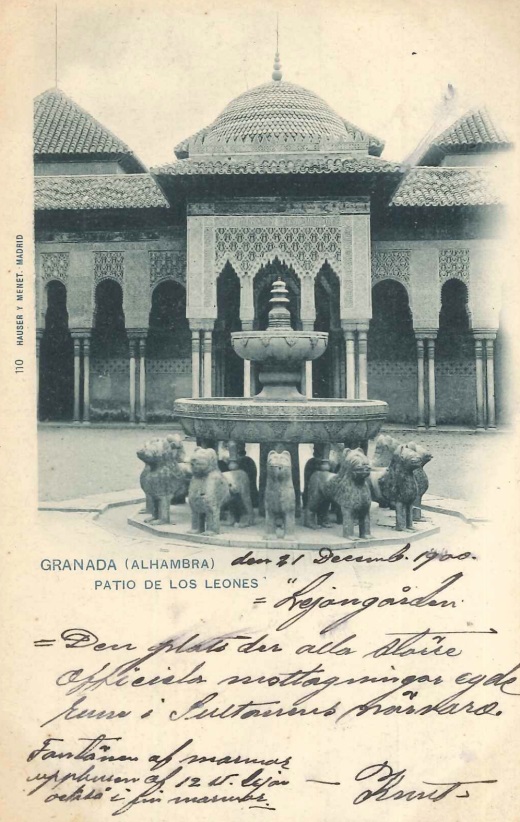 110 HAUSER Y MENET.-MADRID
GRANADA (ALHAMBRA) den 21 Decemb. 1900.
PATIO DE LOS LEONES
= "Lejongården
= Den plats der alla större
Officiela mottagningar egde
rum i Sultanens närvaro.
Fontänen af marmor
uppburen af 12 st. lejon
också i fin marmor. — Knut